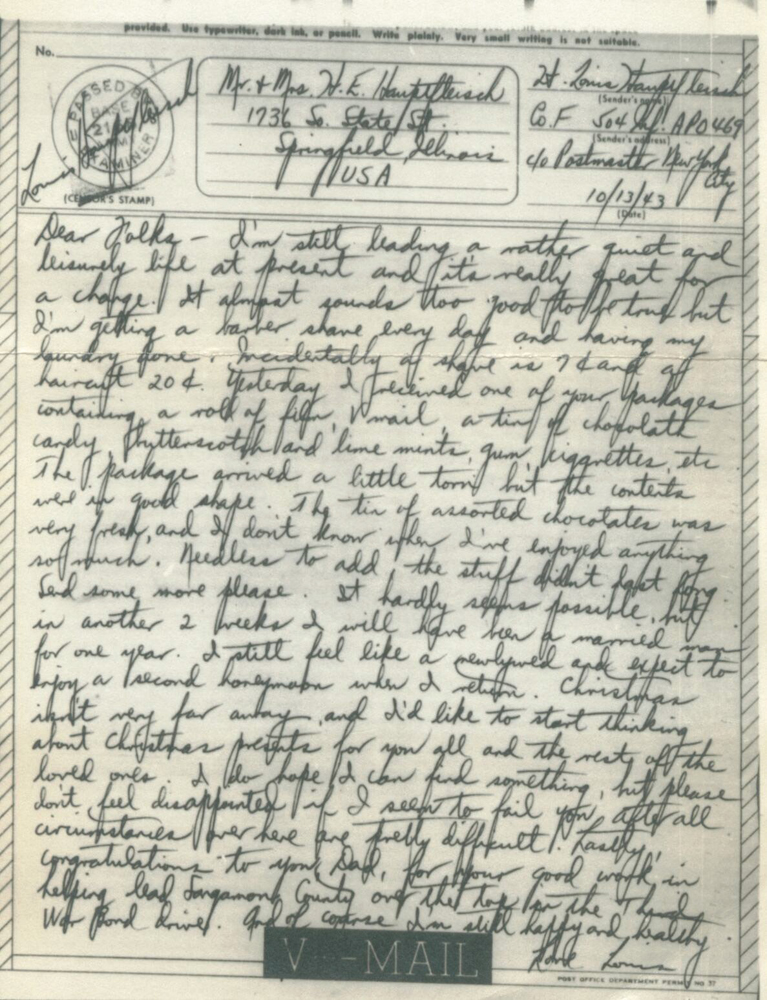 provided. Use typewriter, dark ink, or pencil. Write plainly. Very small writing is not suitable.
No.
PASSED BY
BASE
EXAMINER
Louis Hauptfleisch
(CENSOR'S STAMP)
Mr. & Mrs. H. E. Hauptfleisch
1736 So. State St.
Springfield, Illinois
USA
Lt. Louis Hauptfleisch
(Sender's name)
Co. F 504 Inf. APO 469
(Sender's address)
c/o Postmaster New York
City
10/13/43
(Date)
Dear Folks – I'm still leading a rather quiet and
leisurely life at present and it's really great for
a change. It almost sounds too good to be true but
I'm getting a barber shave every day and having my
laundry done. Incidentally a shave is 7¢ and a
haircut 20¢. Yesterday I received one of your packages
containing a roll of film, V mail, a tin of chocolate
candy, butterscotch and lime mints, gum, ciggrettes, etc.
The package arrived a little torn but the contents
were in good shape. The tin of assorted chocolates was
very fresh, and I don't know when I've enjoyed anything
so much. Needless to add, the stuff didn't last long.
Send some more please. It hardly seems possible, but
in another 2 weeks I will have been a married man
for one year. I still feel like a newlywed and expect to
enjoy a second honeymoon when I return. Christmas
isn't very far away, and I'd like to start thinking
about Christmas presents for you all and the rest of the
loved ones. I do hope I can find something, but please
don't feel disappointed if I seem to fail you, after all
circumstances over here are pretty difficult. Lastly,
congratulations to you, Dad, for your good work in
helping lead Sangamon County over the top in the Third
War Bond drive. And of course I'm still happy and healthy.
Love Louis
V···–MAIL
POST OFFICE DEPARTMENT PERMIT NO 37